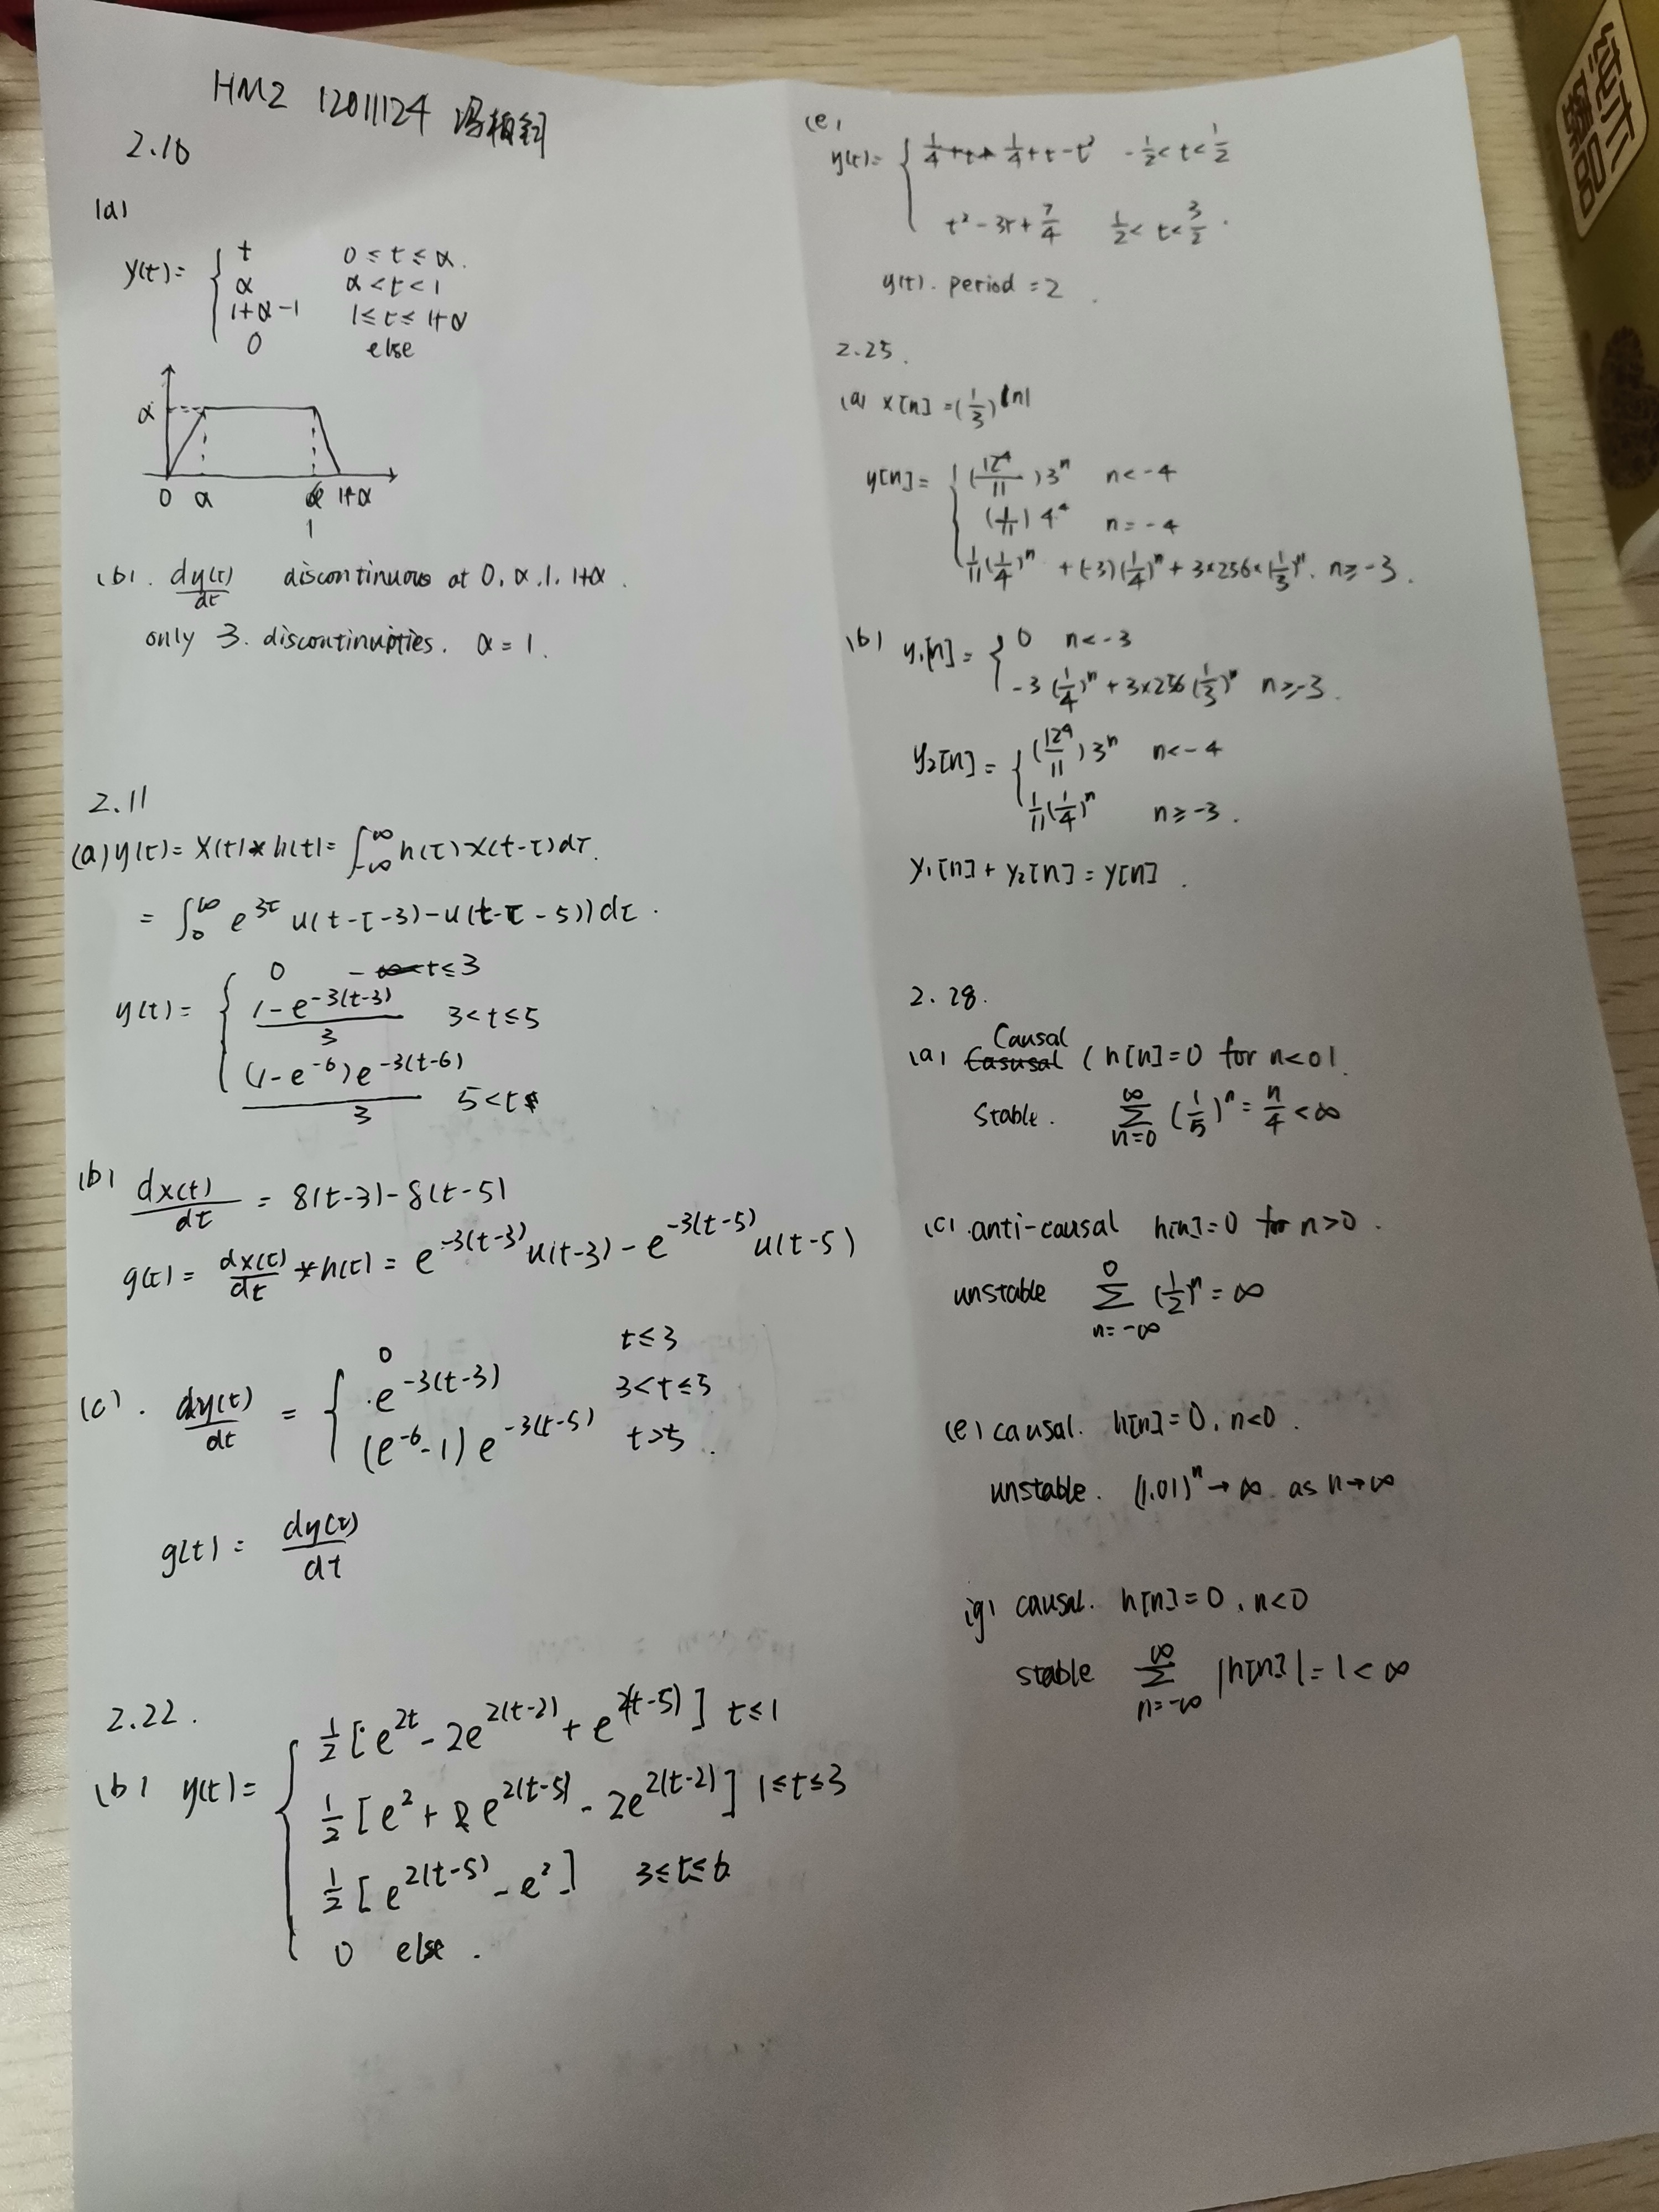 HM2 12011124 冯柏钊
2.10
(a)
y(t)= { t 0≤t≤α.
α α<t<1
1+α-1 1≤t≤1+α
0 else
α
0 a α 1+α
1
(b). dy(t)/dt discontinuous at 0, α, 1, 1+α.
only 3. discontinuities. α=1.
2.11
(a) y(t)= x(t)*h(t)= ∫_{-∞}^{∞} h(τ)x(t-τ)dτ.
= ∫_0^∞ e^{3τ} u(t-τ-3)-u(t-τ-5))dτ.
y(t)= { 0 -∞<t≤3
(1-e^{-3(t-3)})/3 3<t≤5
((1-e^{-6})e^{-3(t-6)})/3 5<t
(b) dx(t)/dt = δ(t-3)-δ(t-5)
g(t)= dx(t)/dt *h(t)= e^{-3(t-3)}u(t-3)-e^{-3(t-5)}u(t-5)
(c). dy(t)/dt = { 0 t≤3
e^{-3(t-3)} 3<t≤5
(e^{-6}-1)e^{-3(t-5)} t>5.
g(t)= dy(t)/dt
2.22.
(b) y(t)= { 1/2[e^{2t}-2e^{2(t-2)}+e^{2(t-5)}] t≤1
1/2[e^2+e^{2(t-5)}-2e^{2(t-2)}] 1≤t≤3
1/2[e^{2(t-5)}-e^2] 3≤t≤6
0 else.
(e)
y(t)= { 1/4+t+ 1/4+t-t² -1/2<t<1/2
t²-3t+7/4 1/2<t<3/2.
y(t). period=2.
2.25.
(a) x[n]=(1/3)^{|n|}
y[n]= { (12⁴/11)3^n n<-4
(1/11)4⁴ n=-4
1/11(1/4)^n+(-3)(1/4)^n+3×256×(1/3)^n. n≥-3.
(b) y₁[n]= { 0 n<-3
-3(1/4)^n+3×256(1/3)^n n≥-3.
y₂[n]= { (12⁴/11)3^n n<-4
1/11(1/4)^n n≥-3.
y₁[n]+y₂[n]=y[n].
2.28.
(a) Casusal Causal (h[n]=0 for n<0).
Stable. Σ_{n=0}^{∞}(1/5)^n=n/4<∞
(c). anti-causal h[n]=0 for n>0.
unstable Σ_{n=-∞}^{0}(1/2)^n=∞
(e) causal. h[n]=0, n<0.
unstable. (1.01)^n→∞ as n→∞
(g) causal. h[n]=0, n<0
stable Σ_{n=-∞}^{∞}|h[n]|=1<∞